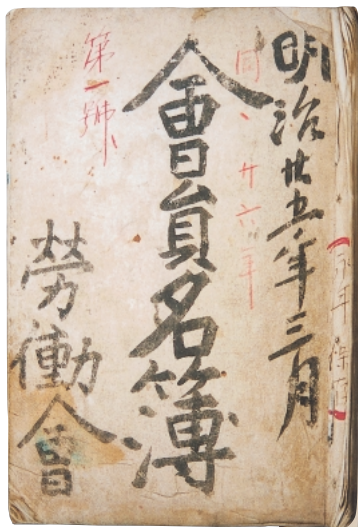 明治廿五年三月
同、廿六年
會員名簿
第一號
勞働會